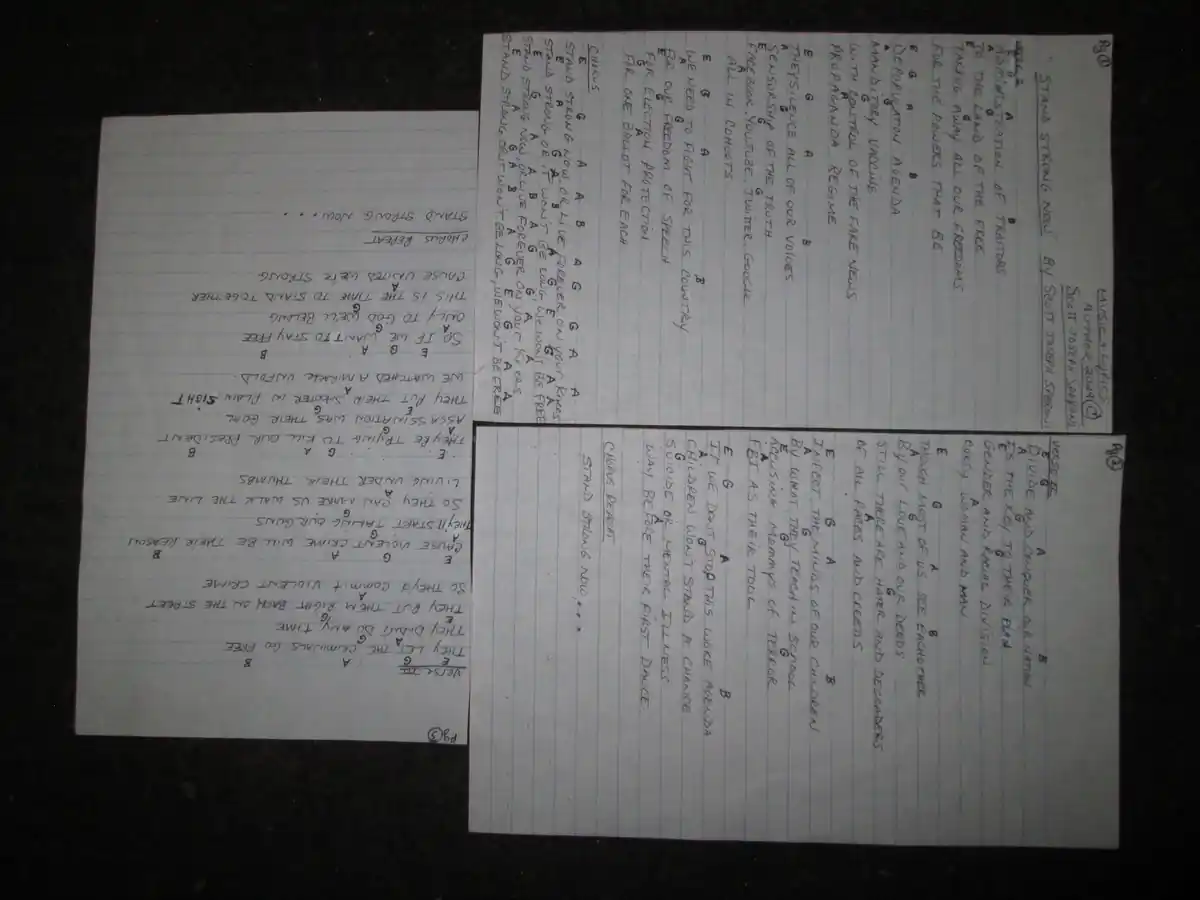 Pg 1
MUSIC & LYRICS
AUTHOR 2024 ©
SCOTT JOSEPH
"STAND STRONG NOW" BY SCOTT JOSEPH
A B
ADMINISTRATION OF TRAITORS
A G
TO THE LAND OF THE FREE
E G
TAKING AWAY ALL OUR FREEDOMS
A
FOR THE POWERS THAT BE
E G A B
DEPOPULATON AGENDA
A G
MANDITORY VACCINE
WITH CONTROL OF THE FAKE NEWS
A
PROPAGANDA REGIME
E G A B
THEY SILENCE ALL OF OUR VOICES
A G
SENSORSHIP OF THE TRUTH
E G
FACEBOOK, YOUTUBE, TWITTER GOOGLE
A
ALL IN COHORTS
E G A B
WE NEED TO FIGHT FOR THIS COUNTRY
A G
FOR OUR FREEDOM OF SPEECH
E G
FOR ELECTION PROTECTION
A
FAR ONE BALLOT FOR EACH
CHORUS
E G A A B A G G A A
STAND STRONG NOW, OR LIVE FOREVER ON YOUR KNEES
STAND STRONG OR IT WON'T BE LONG, WE WON'T BE FREE
STAND STRONG NOW, OR LIVE FOREVER ON YOUR KNEES
STAND STRONG OR IT WON'T BE LONG, WE WON'T BE FREE
Pg 2
VERSE II
E G A B
DIVIDE AND CONQUER OUR NATION
A G
IS THE KEY TO THEIR PLAN
E G
GENDER AND RACIAL DIVISION
A
EVERY WOMAN AND MAN
E G A B
THOUGH MOST OF US SEE EACHOTHER
A G
BY OUR LOVE AND OUR DEEDS
E G
STILL THERE ARE HATER AND DESCADERS
A
OF ALL RACES AND CREEDS
E G A B
INFECT THE MINDS OF OUR CHILDREN
A G
BY WHAT THEY TEACH IN SCHOOL
E G
ACCUSING MOMMYS OF TERROR
A
FBI AS THEIR TOOL
E G A B
IF WE DON'T STOP THIS WOKE AGENDA
A G
CHILDREN WON'T STAND A CHANCE
G
SUICIDE OR MENTAL ILLNESS
A
WAY BEFORE THEIR FIRST DANCE
CHORUS REPEAT
STAND STRONG NOW....
Pg 3
VERSE III
E G A B
THEY LET THE CRIMINALS GO FREE
A G
THEY DIDN'T DO ANY TIME
E G
THEY PUT THEM RIGHT BACK ON THE STREET
A
SO THEY'D COMMIT VIOLENT CRIME
E G A B
CAUSE VIOLENT CRIME WILL BE THEIR REASON
A G
THEY'LL START TAKING OUR GUNS
SO THEY CAN MAKE US WALK THE LINE
A
LIVING UNDER THEIR THUMBS
E G A B
THEY'RE TRYING TO KILL OUR PRESIDENT
A G
ASSASSINATION WAS THEIR GOAL
E G
THEY PUT THEIR SHOOTER IN PLAIN SIGHT
A
WE WATCHED A MIRACLE UNFOLD
E G A B
SO IF WE WANT TO STAY FREE
A G
ONLY TO GOD WE'LL BELONG
G
THIS IS THE TIME TO STAND TOGETHER
A
CAUSE UNITED WE'RE STRONG
CHORUS REPEAT
STAND STRONG NOW....